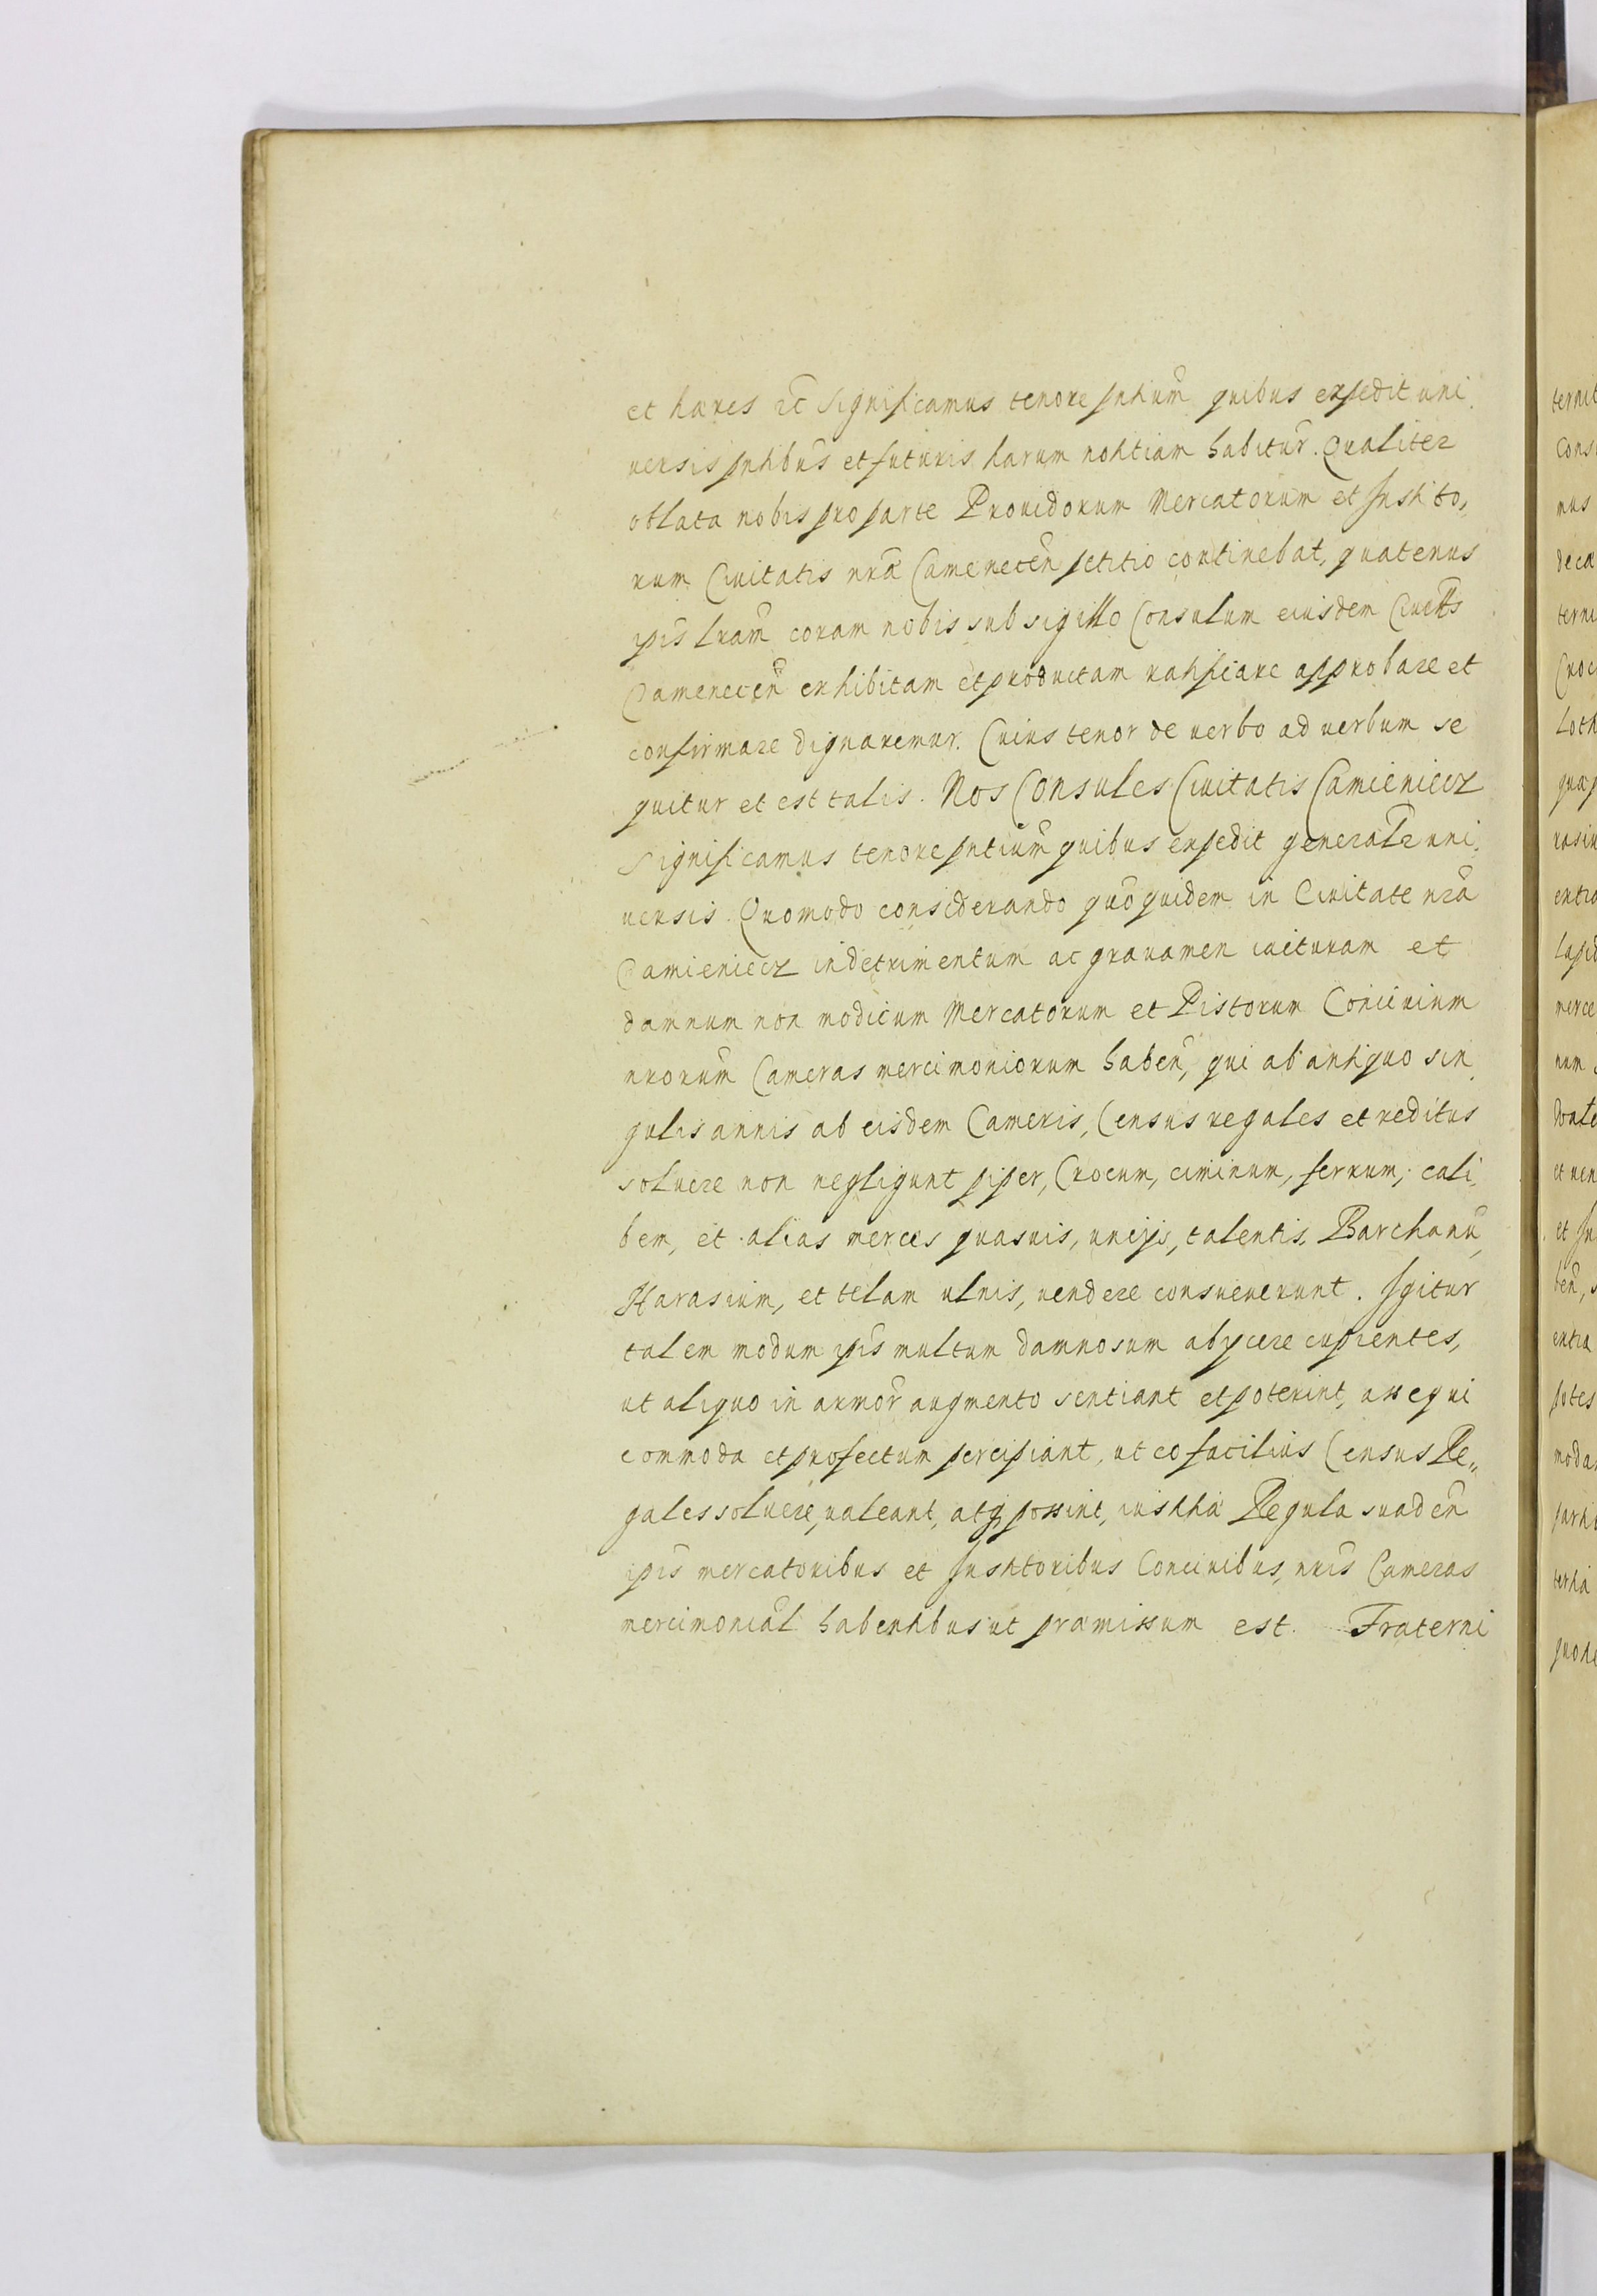 et hæres etc̄ significamus tenore pntiūm quibus expedit uni
uersis pntibūs et futuris harum notitiam habitūr. Qualiter
oblata nobis pro parte Prouidorum Mercatorum et Instito,
rum Ciuitatis nrā Camenecēn petitio continebat, quatenus
ipīs lrām coram nobis sub sigillo Consulum eiusdem Ciuetts
Camenecēn exhibitam et productam ratificare approbare et
confirmare dignaremur. Cuius tenor de uerbo ad uerbum se
quitur et est talis. Nos Consules Ciuitatis Camieniecz
significamus tenore pntiūm quibus expedit generalr̄ uni
uersis. Quomodo considerando quōquidem in Ciuitate nrā
Camieniecz in detrimentum ac grauamen iacturam et
damnum non modicum Mercatorum et Pistorum Conciuium
nrorūm Cameras mercimoniorum habēn, qui ab antiquo sin
gulis annis ab eisdem Cameris, Census regales et reditus
soluere non negligunt piper, Crocum, ciminum, ferrum, cali
bem, et alias merces quasuis, uncijs, talentis, Barchanū,
Harasium, et telam ulnis, uendere consueuerunt. Igitur
talem modum ipīs multum damnosum abijcere cupientes,
ut aliquo in armōr augmento sentiant et poterint, assequi
commoda et profectum percipiant, ut eo facilius Census Re„
gales soluere, ualeant, atq, possint, iustitiā Regula suadēn
ipīs mercatoribus et Institoribus Conciuibus, nrīs Cameras
mercimoniāl habentibus ut præmissum est. Fraterni
ternit
Cons
nus
deca
terni
Croc
Loth
quap
rasiu
entia
lapid
merce
num
et uen
et In
bēn, s
entia
potes
modan
parti